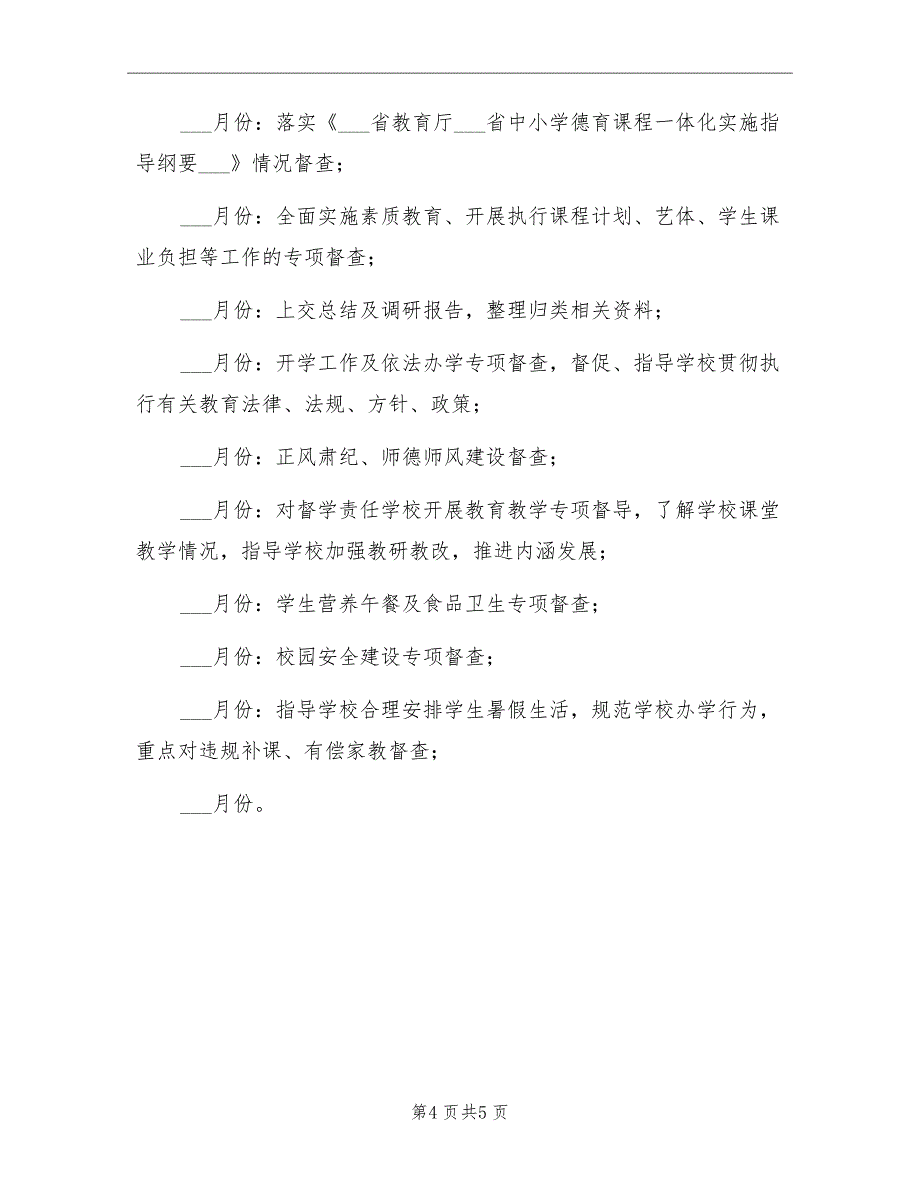 ___月份：落实《___省教育厅___省中小学德育课程一体化实施指
导纲要___》情况督查；
___月份：全面实施素质教育、开展执行课程计划、艺体、学生课
业负担等工作的专项督查；
___月份：上交总结及调研报告，整理归类相关资料；
___月份：开学工作及依法办学专项督查，督促、指导学校贯彻执
行有关教育法律、法规、方针、政策；
___月份：正风肃纪、师德师风建设督查；
___月份：对督学责任学校开展教育教学专项督导，了解学校课堂
教学情况，指导学校加强教研教改，推进内涵发展；
___月份：学生营养午餐及食品卫生专项督查；
___月份：校园安全建设专项督查；
___月份：指导学校合理安排学生暑假生活，规范学校办学行为，
重点对违规补课、有偿家教督查；
___月份。
第4 页 共5 页